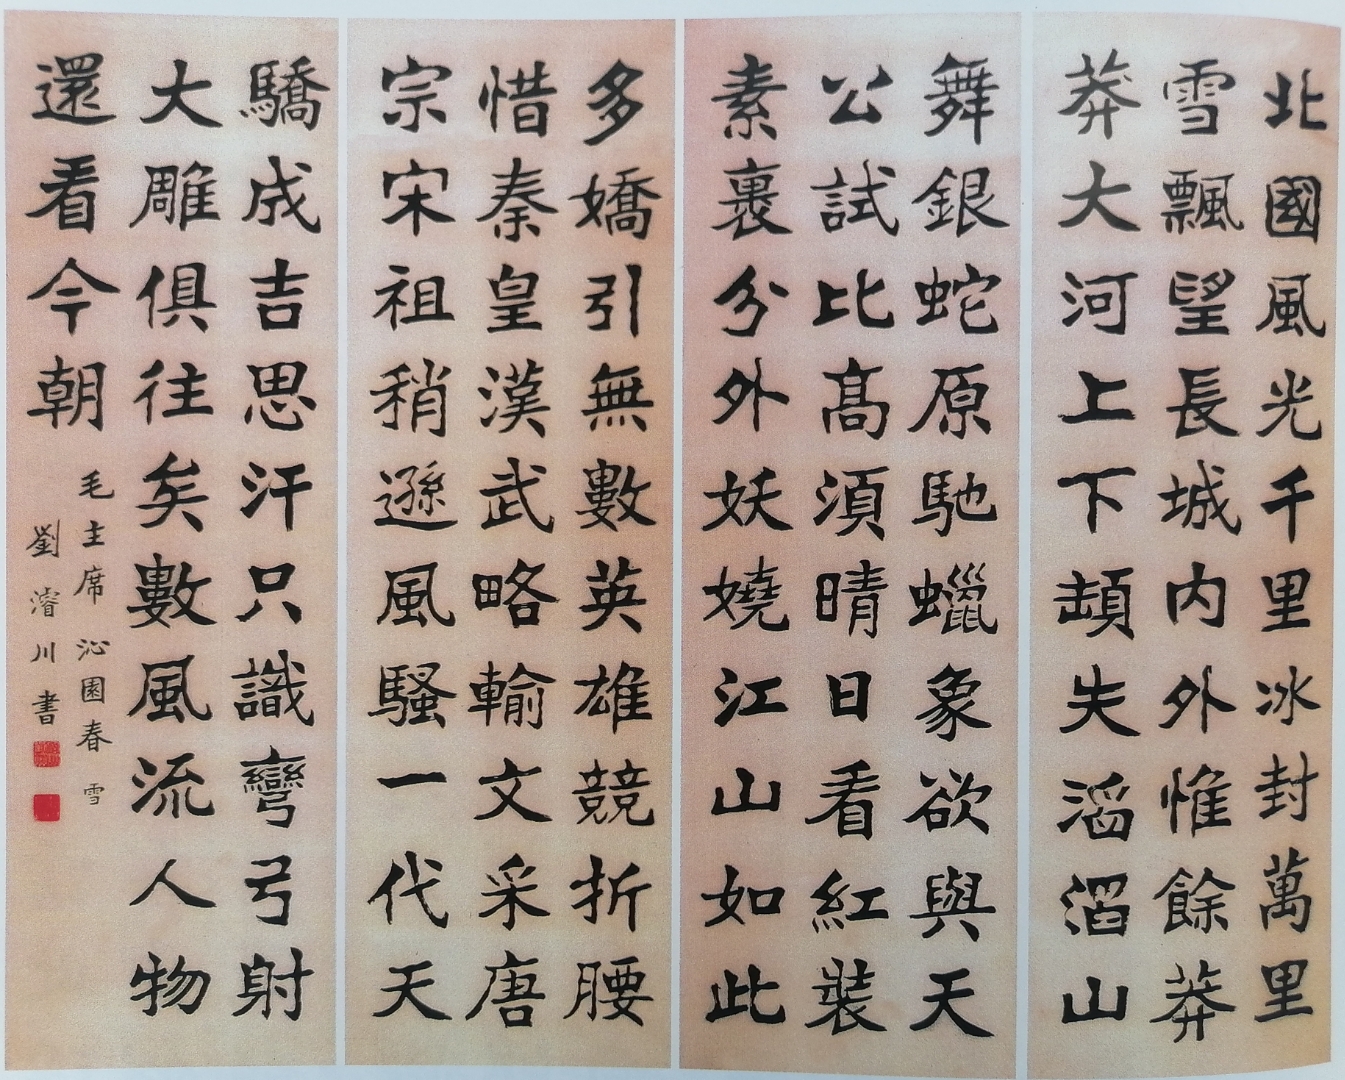 北國風光千里冰封萬里
雪飄望長城内外惟餘莽
莽大河上下頓失滔滔山
舞銀蛇原馳蠟象欲與天
公試比髙湏晴日看紅裝
素裹分外妖嬈江山如此
多嬌引無數英雄競折腰
惜秦皇漢武略輸文采唐
宗宋祖稍遜風騷一代天
驕成吉思汗只識彎弓射
大雕俱往矣數風流人物
還看今朝
毛主席 沁園春 雪
劉濬川書